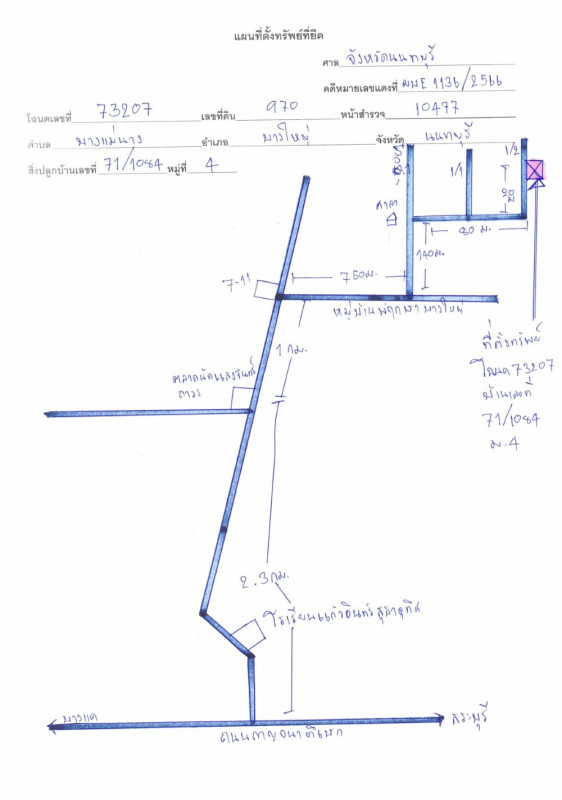 แผนที่ตั้งทรัพย์ที่ยึด
ศาล จังหวัดนนทบุรี
คดีหมายเลขแดงที่ ผบE 1136/2566
โฉนดเลขที่ 73207 เลขที่ดิน 970 หน้าสำรวจ 10477
ตำบล บางแม่นาง อำเภอ บางใหญ่ จังหวัด นนทบุรี
สิ่งปลูกบ้านเลขที่ 71/1084 หมู่ที่ 4
1/1
1/2
20 ม
ศาลา
80 ม.
140 ม.
7-11
750 ม.
หมู่บ้าน พฤกษา บางใหญ่
1 กม.
ที่ตั้งทรัพย์
โฉนด 73207
บ้านเลขที่
71/1084
ม.4
ตลาดนัดแสงจันทร์
ถาวร
2.3 กม.
โรงเรียนแก้วอินทร์สุธาอุทิศ
บางแค
สระบุรี
ถนนกาญจนาภิเษก